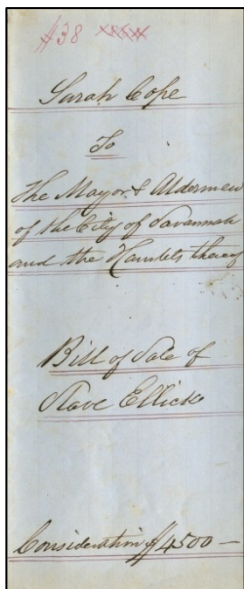 #38 XXXX
Sarah Cope
To
The Mayor & Aldermen
of the City of Savannah
and the Hamlets thereof
Bill of Sale of
Slave Ellick
Consideration $4500 —